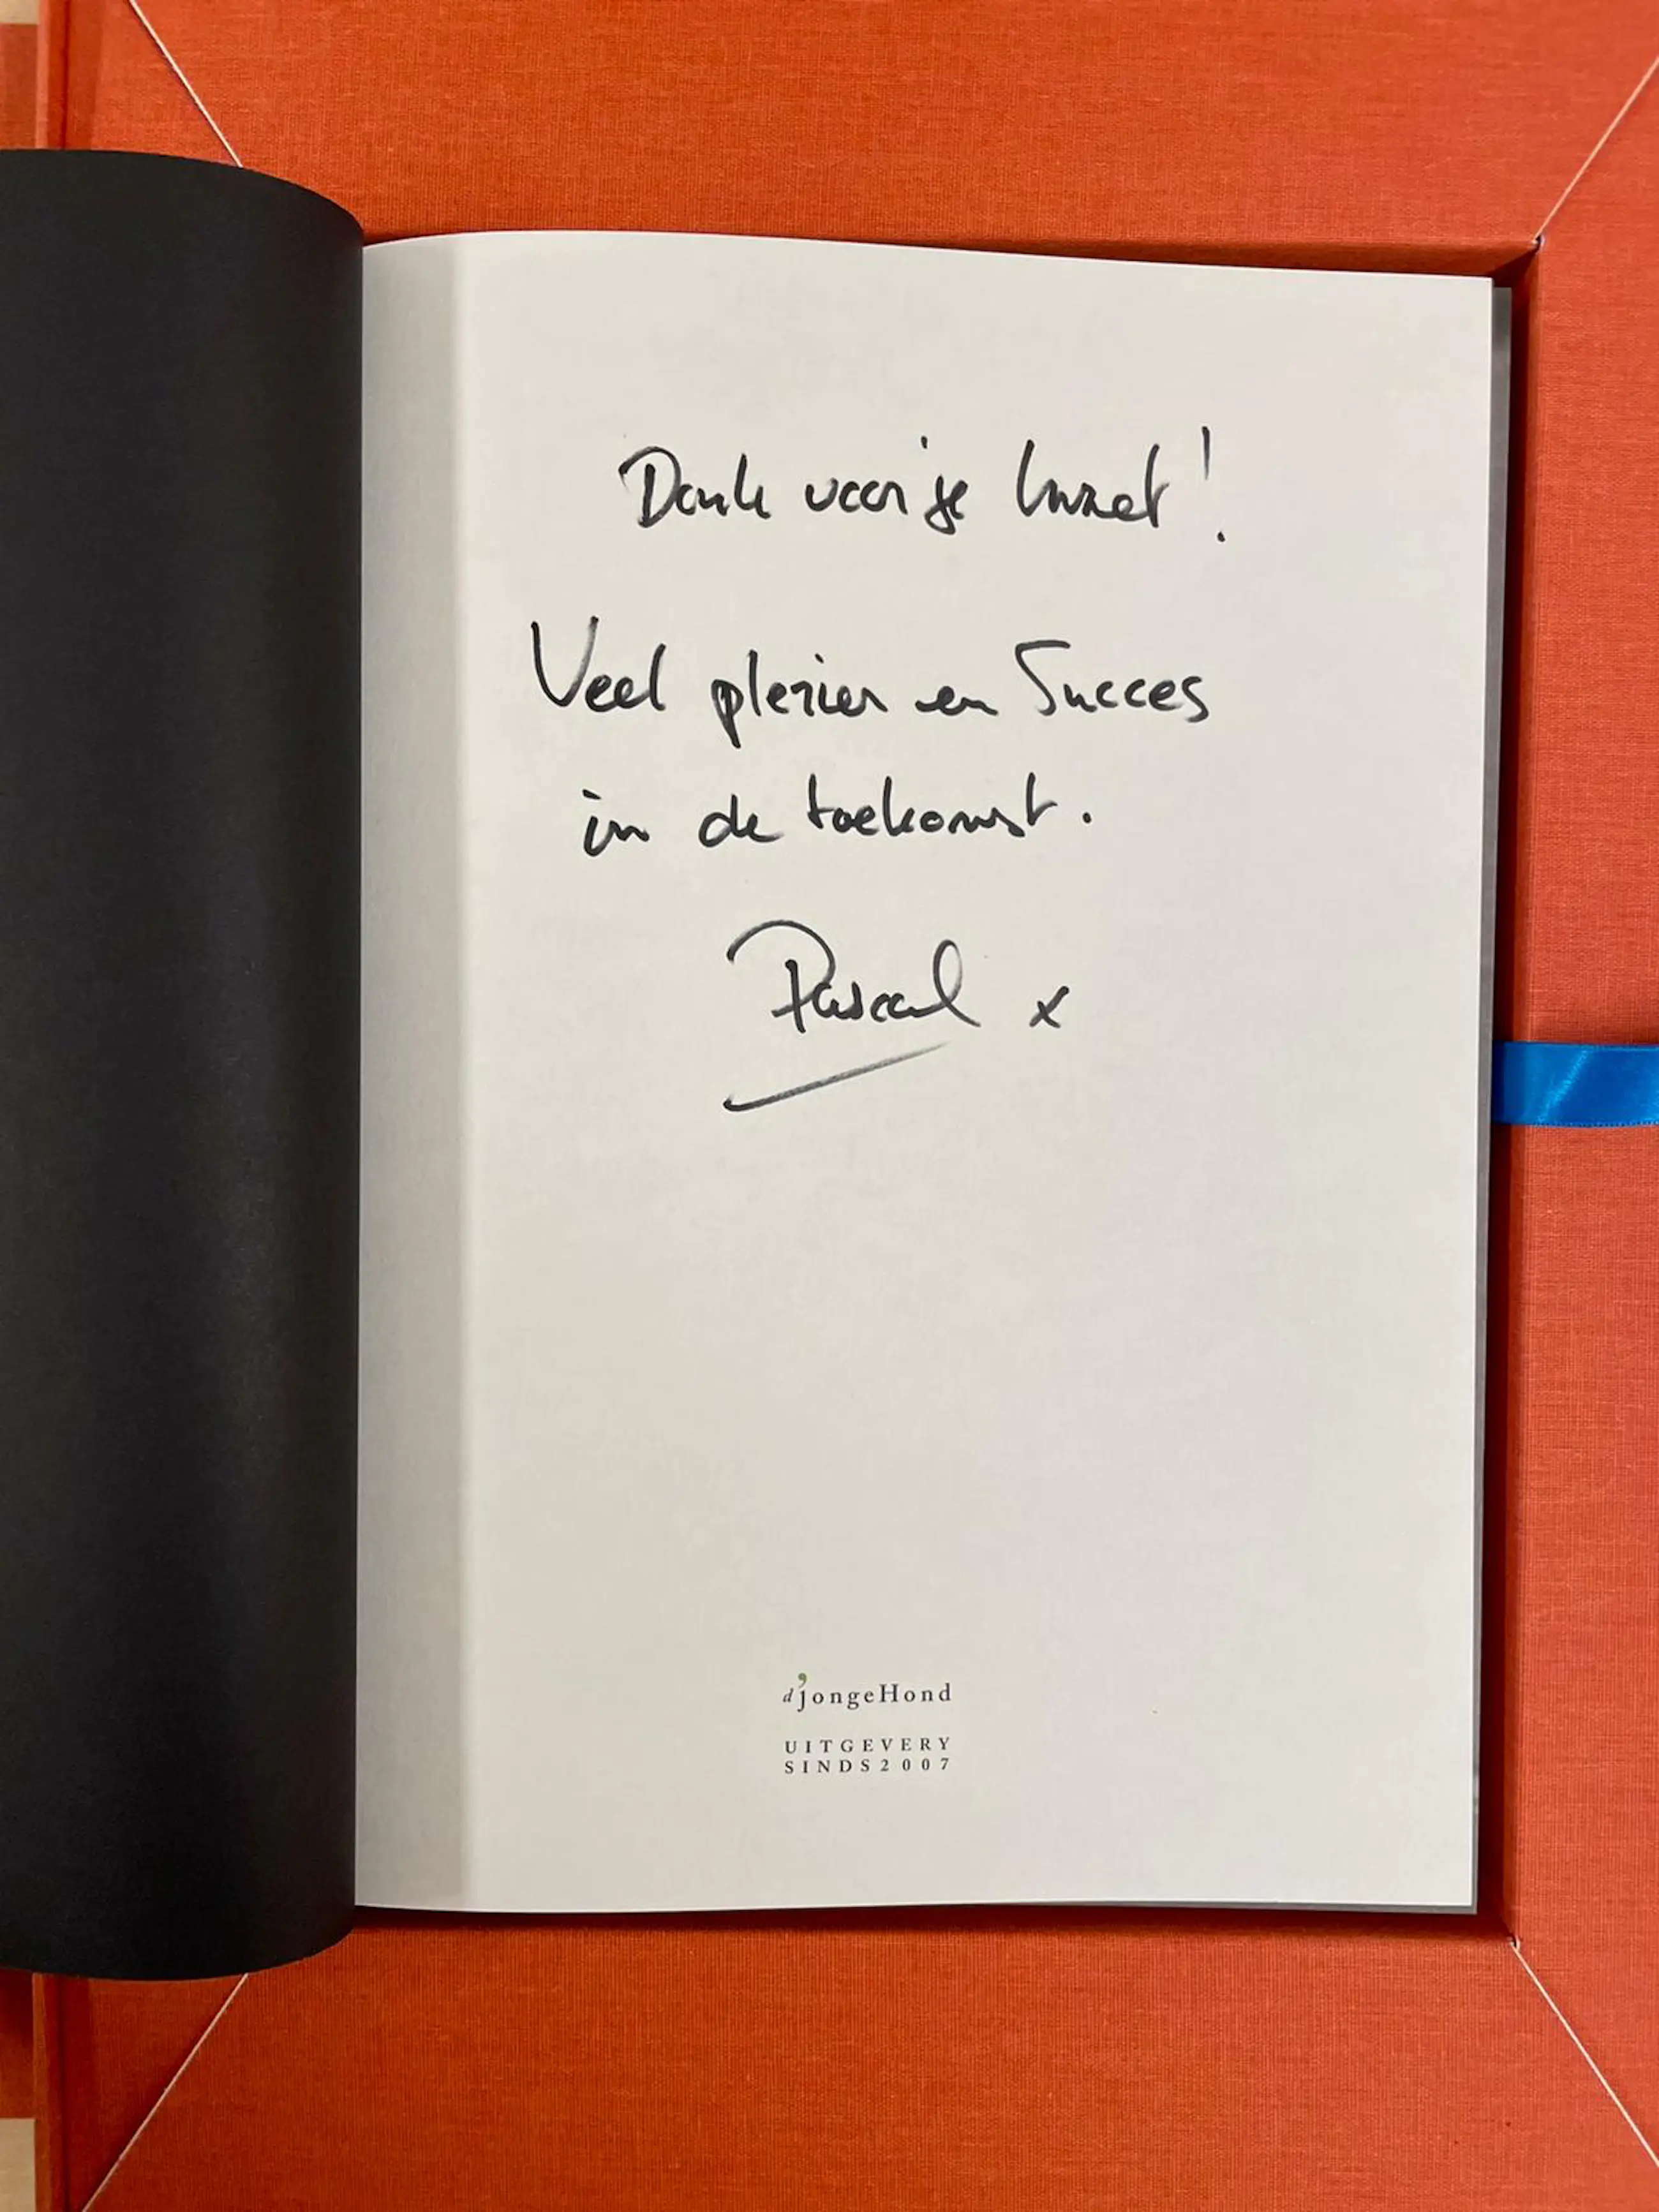 Dank voor je inzet!
Veel plezier en Succes
in de toekomst.
Pascal x
d'jongeHond
UITGEVERY
SINDS2007